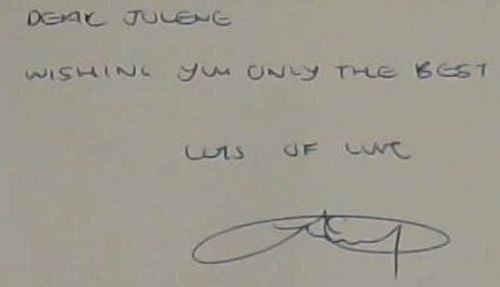 DEAR JULENE
WISHING YOU ONLY THE BEST
LOTS OF LOVE